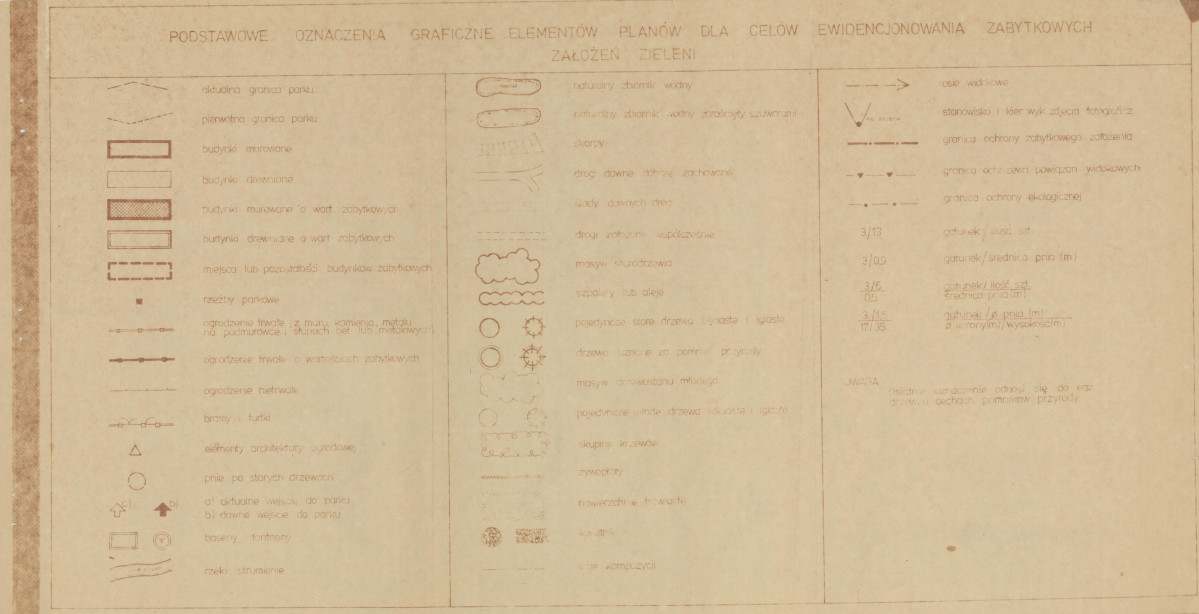 PODSTAWOWE OZNACZENIA GRAFICZNE ELEMENTÓW PLANÓW DLA CELÓW EWIDENCJONOWANIA ZABYTKOWYCH
ZAŁOŻEŃ ZIELENI
aktualna granica parku
pierwotna granica parku
budynki murowane
budynki drewniane
budynki murowane o wart. zabytkowych
budynki drewniane o wart. zabytkowych
miejsca lub pozostałości budynków zabytkowych
rzeźby parkowe
ogrodzenie trwałe (z muru, kamienia, metalu
na podmurówce i słupach bet. lub metalowych)
ogrodzenie trwałe o wartościach zabytkowych
ogrodzenie nietrwałe
bramy i furtki
elementy architektury ogrodowej
pnie po starych drzewach
a) b)
a) aktualne wejście do parku
b) dawne wejście do parku
baseny, fontanny
rzeki strumienie
naturalny zbiornik wodny
naturalny zbiornik wodny zarośnięty szuwarami
skarpy
drogi dawne dobrze zachowane
ślady dawnych dróg
drogi założone współcześnie
masyw starodrzewia
szpalery lub aleje
pojedyncze stare drzewa liściaste i iglaste
drzewa uznane za pomnik przyrody
masyw drzewostanu młodego
pojedyncze młode drzewa liściaste i iglaste
skupiny krzewów
żywopłoty
nawierzchnie trawiaste
kwietniki
osie kompozycji
osie widokowe
stanowisko i kier. wyk. zdjęcia fotograficz.
granica ochrony zabytkowego założenia
granica ochrony powiązań widokowych
granica ochrony ekologicznej
3/13 gatunek/ilość szt.
3/0,9 gatunek/średnica pnia (m)
3/6 gatunek/ilość szt.
0,5 średnica pnia (m)
3/1,5 gatunek/ø pnia (m)
17/35 ø korony(m)/wysokość(m)
UWAGA
Ostatnie oznaczenie odnosi się do egz.
drzew o cechach pomników przyrody